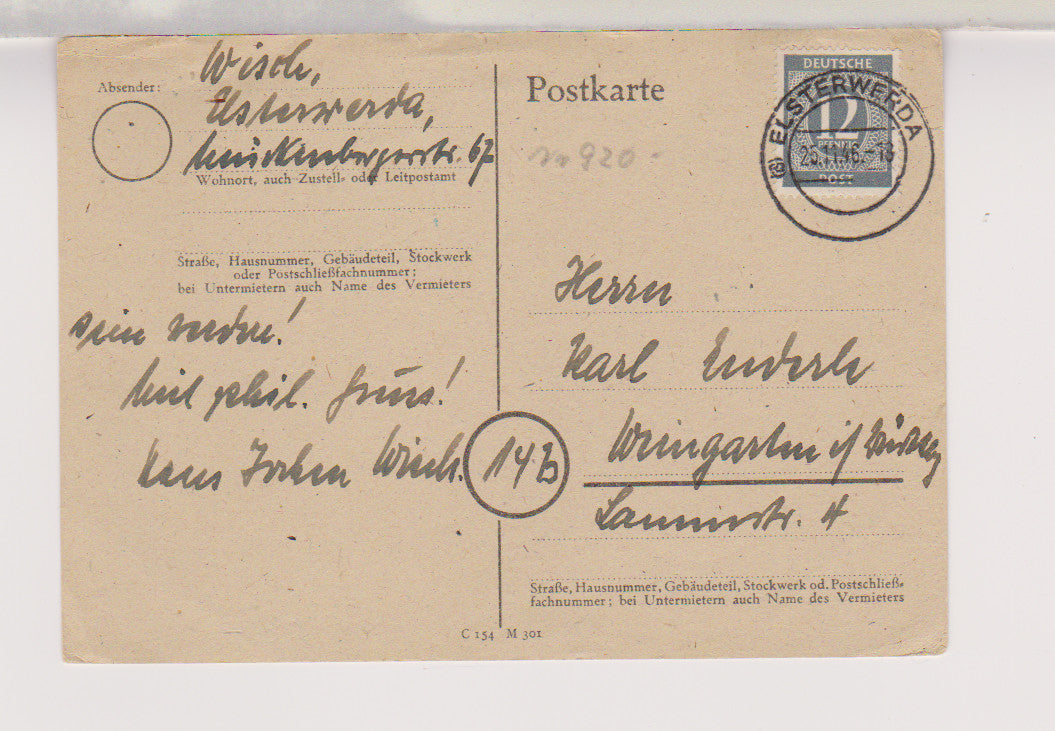 Absender:
Wisch,
Elsterwerda,
Mückenbergerstr. 67
Wohnort, auch Zustell- oder Leitpostamt
Straße, Hausnummer, Gebäudeteil, Stockwerk
oder Postschließfachnummer;
bei Untermietern auch Name des Vermieters
sein werden!
Mit phil. Gruss!
Hans Jochen Wisch.
Postkarte
920
DEUTSCHE
12
PFENNIG
POST
ELSTERWERDA
25.11.46.-18
Herrn
Karl Enderle
14b
Weingarten i/Württbg
Lammstr. 4
Straße, Hausnummer, Gebäudeteil, Stockwerk od. Postschließ-
fachnummer; bei Untermietern auch Name des Vermieters
C 154 M 301